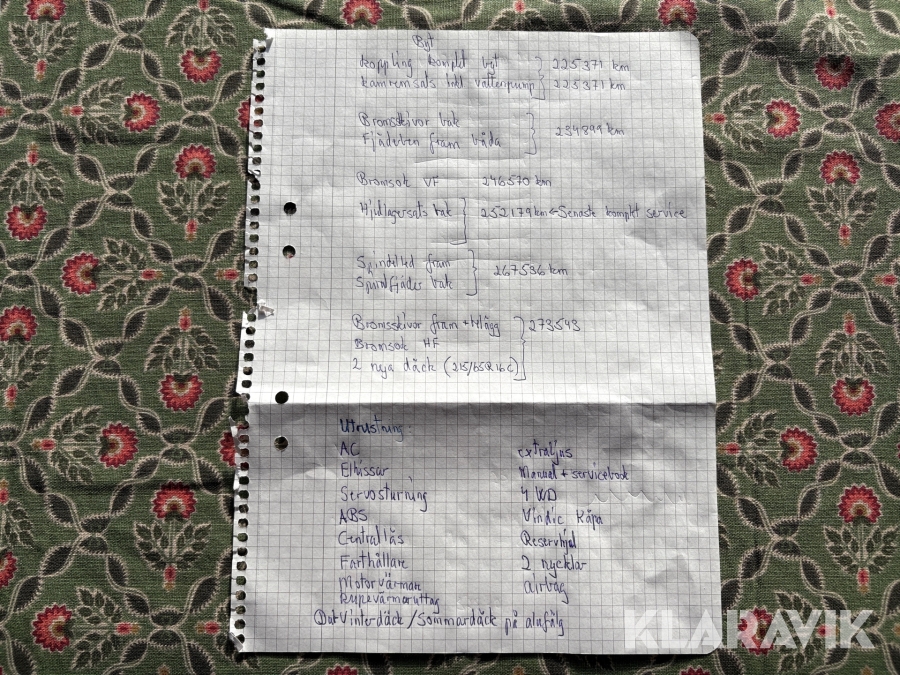 Byt
koppling komplet byt 225371 km
kamremsats inkl vattenpump 225371 km
Bromsskivor bak
Fjäderben fram båda 234399 km
Bromsok VF 246570 km
Hjullagersats bak 252179 km ← Senaste komplet service
Spindelled fram
Spiralfjäder bak 267536 km
Bromsskivor fram + blägg 273543
Bromsok HF
2 nya däck (215/65R16C)
Utrustning:
AC extraljus
Elhissar Manual + servicebook
Servosturning 4 WD
ABS Vindic Kåpa
Centrallås Reservhjul
Farthållare 2 nycklar
Motorvärmare airbag
kupevärmaruttag
Vinterdäck / Sommardäck på alufälg
KLARAVIK